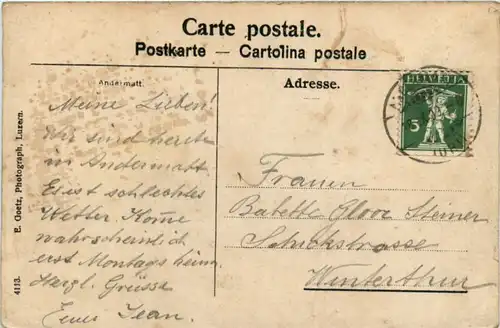 Carte postale.
Postkarte — Cartolina postale
Andermatt.
Adresse.
Meine Lieben!
Wir sind heute
in Andermatt.
Es ist schlechtes
Wetter. Kom̅e
wahrscheinlich
erst Montags heim.
Herzl. Grüsse
Euer Jean.
HELVETIA
5
Frauen
Babette Steiner
Schickstrasse
Winterthur
E. Goetz, Photograph, Luzern.
4113.